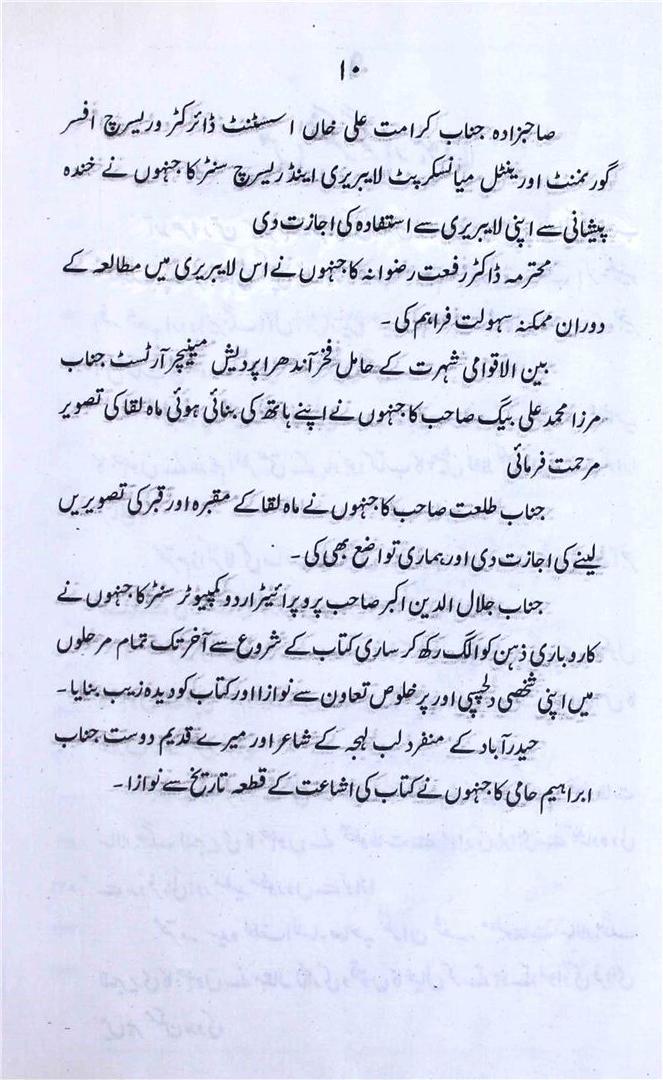 ۱۰
صاحبزادہ جناب کرامت علی خاں اسسٹنٹ ڈائرکٹر و ریسرچ افسر
گورنمنٹ اورینٹل میانسکرپٹ لایبریری اینڈ ریسرچ سنٹر کا جنہوں نے خندہ
پیشانی سے اپنی لایبریری سے استفادہ کی اجازت دی
محترمہ ڈاکٹر رفعت رضوانہ کا جنہوں نے اس لایبریری میں مطالعہ کے
دوران ممکنہ سہولت فراہم کی۔
بین الاقوامی شہرت کے حامل فخر آندھرا پردیش مینیچر آرٹسٹ جناب
مرزا محمد علی بیگ صاحب کا جنہوں نے اپنے ہاتھ کی بنائی ہوئی ماہ لقا کی تصویر
مرحمت فرمائی
جناب طلعت صاحب کا جنہوں نے ماہ لقا کے مقبرہ اور قبر کی تصویریں
لینے کی اجازت دی اور ہماری تواضع بھی کی۔
جناب جلال الدین اکبر صاحب پروپرائیٹر اردو کمپیوٹر سنٹر کا جنہوں نے
کاروباری ذہن کو الگ رکھ کر ساری کتاب کے شروع سے آخر تک تمام مرحلوں
میں اپنی شخصی دلچپسی اور پر خلوص تعاون سے نوازا اور کتاب کو دیدہ زیب بنایا۔
حیدرآباد کے منفرد لب لہجہ کے شاعر اور میرے قدیم دوست جناب
ابراہیم حامی کا جنہوں نے کتاب کی اشاعت کے قطعہ تاریخ سے نوازا۔